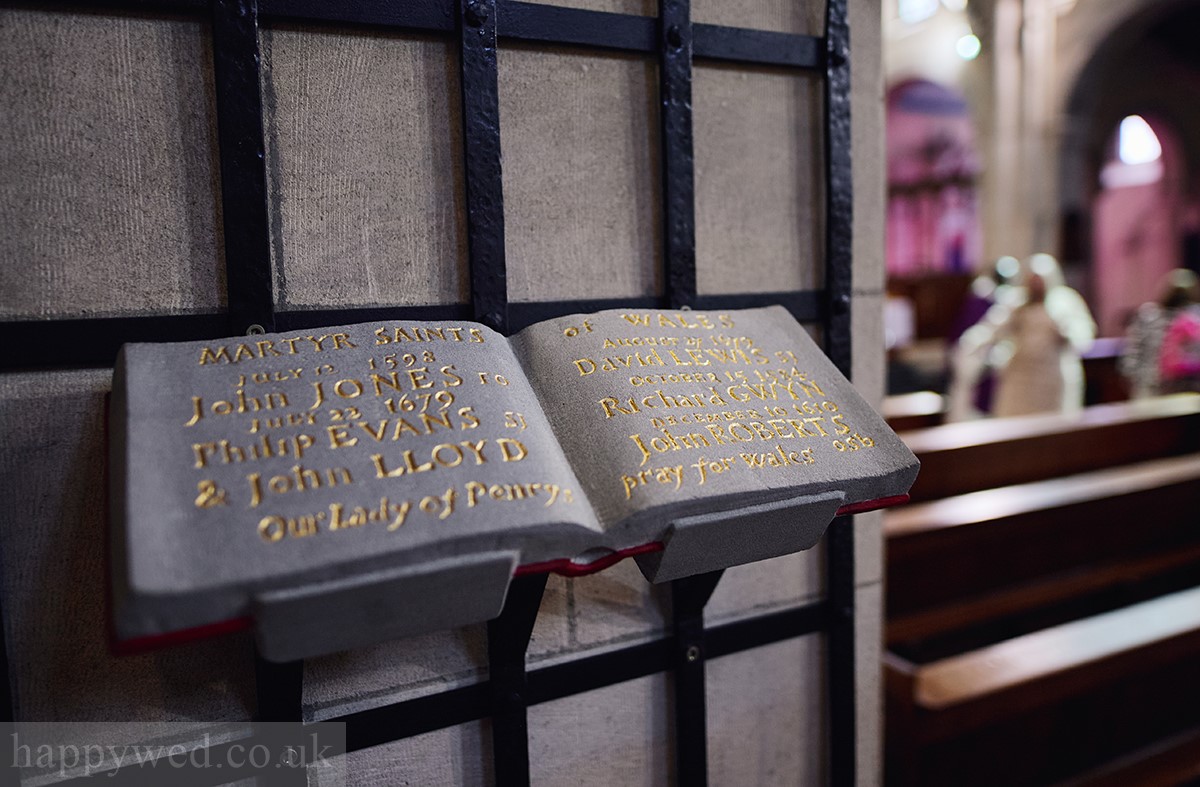 MARTYR SAINTS
JULY 12 1598
John JONES FO
JULY 22 1679
Philip EVANS SJ
& John LLOYD
Our Lady of Penrys
of WALES
AUGUST 27 1679
David LEWIS SJ
OCTOBER 15 1584
Richard GWYN
DECEMBER 10 1610
John ROBERTS
OSb
pray for Wales
happywed.co.uk